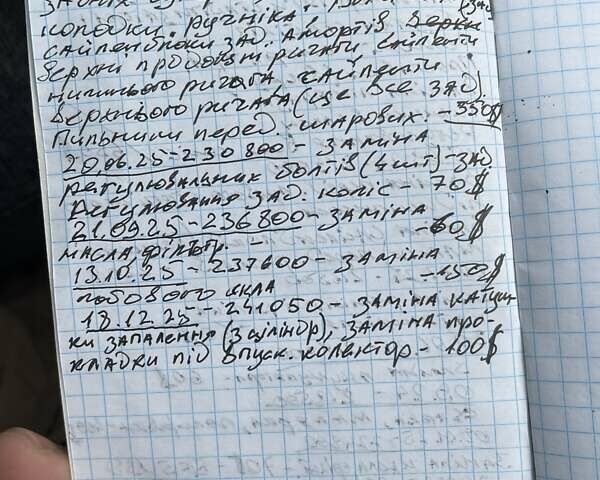 колодки ручніка.
сайлентблоки зад. амортів
верхні продольні ричаги сайленти
нижнього ричага сайленти
верхнього ричага (це все зад)
Пильники перед. шарових. - 350$
20.06.25 - 230 800 - заміна
регулювальних болтів (4шт) - зад
Регулювання зад. коліс - 70$
21.09.25 - 236800 - заміна
масла, фільтр. - 60$
13.10.25 - 237600 - заміна
лобового скла - 150$
18.12.25 - 241050 - заміна катуш
ки запалення (3 цілиндр), заміна про-
кладки під впуск. колектор - 100$